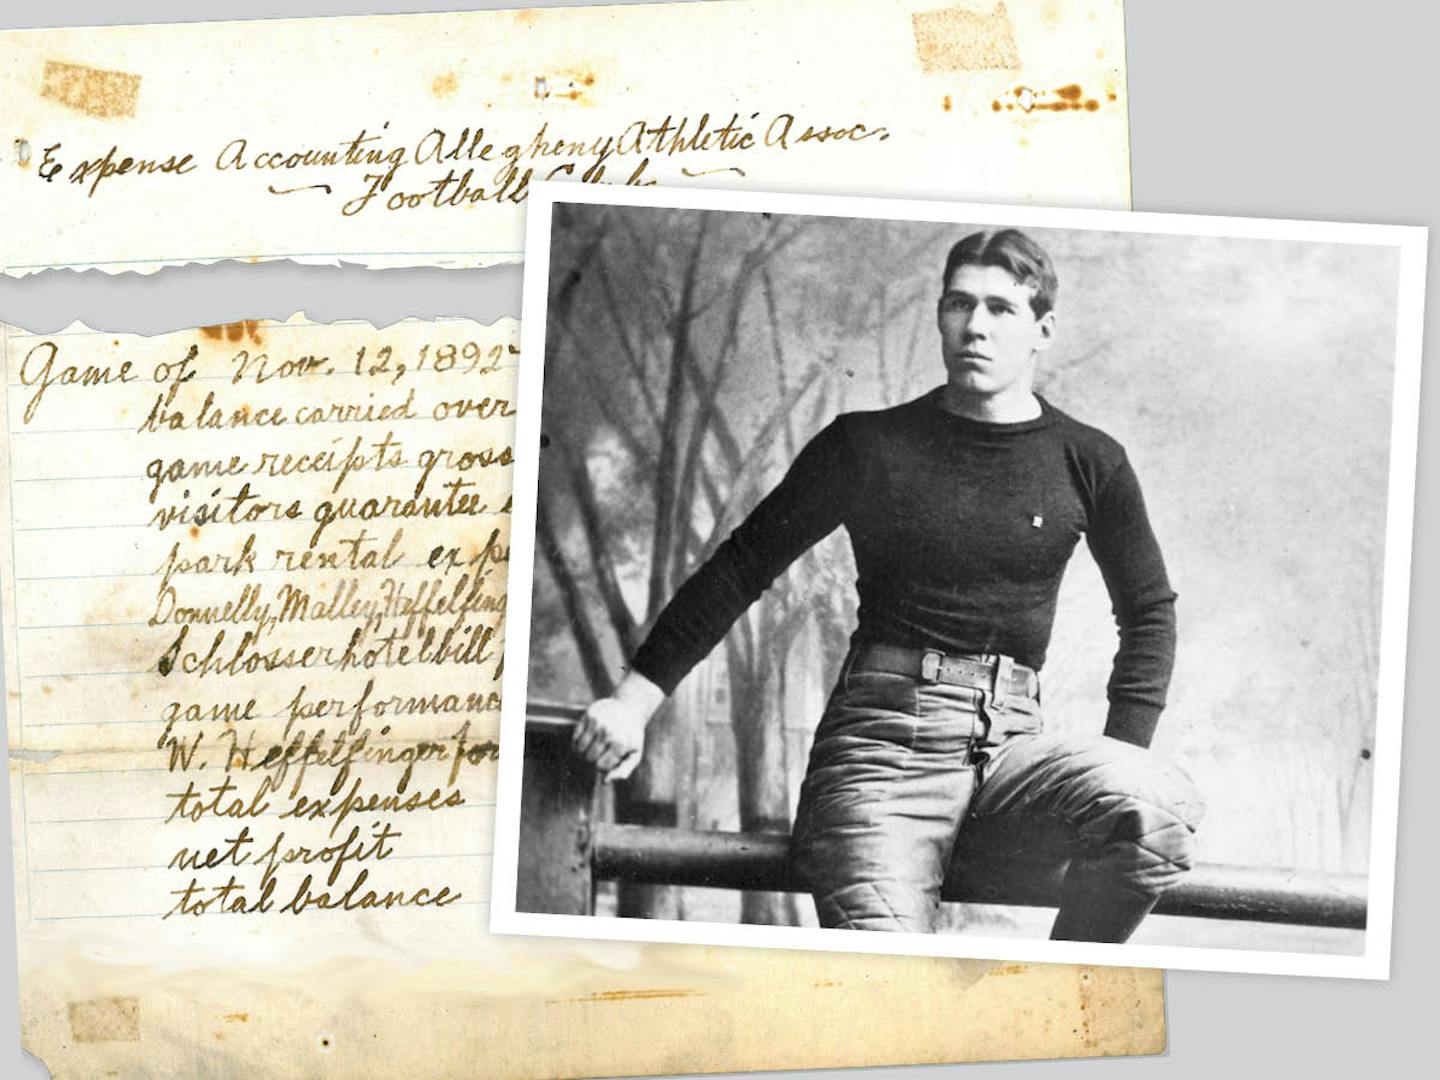 Expense Accounting Allegheny Athletic Assoc.
Football Club
Game of Nov. 12, 1892
balance carried over
game receipts gross
visitors guarantee
park rental
Donnelly, Malley, Heffelfing
Schlosser hotel bill
game performanc
W. Heffelfinger for
total expenses
net profit
total balance